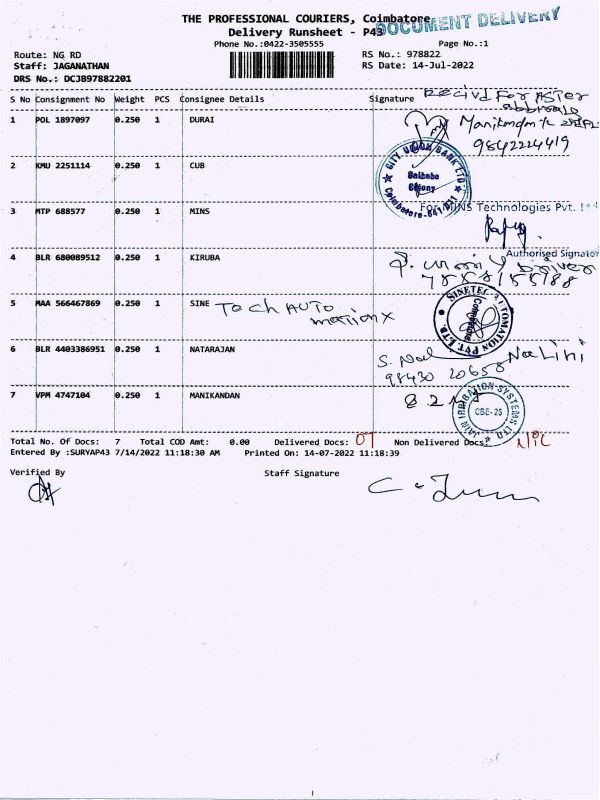 THE PROFESSIONAL COURIERS, Coimbatore
DOCUMENT DELIVERY
Delivery Runsheet - P43
Phone No.:0422-3505555
Page No.:1
Route: NG RD
RS No.: 978822
Staff: JAGANATHAN
RS Date: 14-Jul-2022
DRS No.: DCJB97882201
S No Consignment No Weight PCS Consignee Details Signature
1 POL 1897097 0.250 1 DURAI
9842224419
2 KMU 2251114 0.250 1 CUB
CITY UNION BANK LTD.
Saibaba
Colony
Coimbatore-641 011
3 MTP 688577 0.250 1 MINS
For MINS Technologies Pvt. Ltd
Authorised Signatory
4 BLR 680089512 0.250 1 KIRUBA
5 MAA 566467869 0.250 1 SINE Tech AUTO
SINETEC AUTOMATION PVT. LTD.
Coimbatore
6 BLR 4403386951 0.250 1 NATARAJAN
Nalini
98430 20658
7 VPM 4747104 0.250 1 MANIKANDAN
JAIN IRRIGATION SYSTEMS LTD
CBE-25
Total No. Of Docs: 7 Total COD Amt: 0.00 Delivered Docs: 07 Non Delivered Docs: NIL
Entered By :SURYAP43 7/14/2022 11:18:30 AM Printed On: 14-07-2022 11:18:39
Verified By Staff Signature